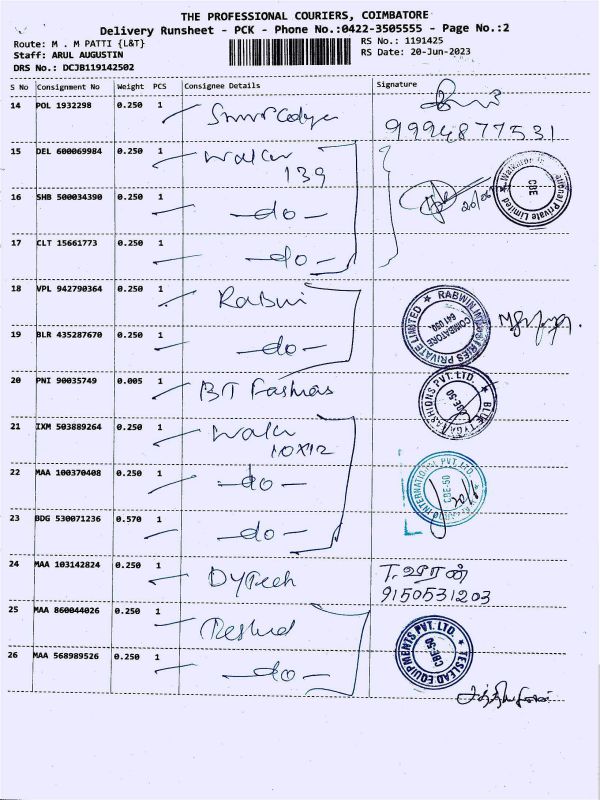 THE PROFESSIONAL COURIERS, COIMBATORE
Delivery Runsheet - PCK - Phone No.:0422-3505555 - Page No.:2
Route: M . M PATTI {L&T}
RS No.: 1191425
Staff: ARUL AUGUSTIN
RS Date: 20-Jun-2023
DRS No.: DCJB119142502
S No Consignment No Weight PCS Consignee Details Signature
14 POL 1932298 0.250 1
9994877531
15 DEL 600069984 0.250 1
139
16 SHB 500034390 0.250 1 -do-
20/06
CBE
17 CLT 15661773 0.250 1 -do-
18 VPL 942790364 0.250 1
RABWIN INDUSTRIES PRIVATE LIMITED
COIMBATORE
19 BLR 435287670 0.250 1 -do-
20 PNI 90035749 0.005 1 BT Fashions
BLUE TYGA FASHIONS PVT. LTD.
21 IXM 503889264 0.250 1
22 MAA 100370408 0.250 1 -do-
INTERNATIONAL PVT. LTD.
CBE-50
23 BDG 530071236 0.570 1 -do-
24 MAA 103142824 0.250 1 DyTech
9150531203
25 MAA 860044026 0.250 1
TESLEAD EQUIPMENTS PVT. LTD.
CBE-50
26 MAA 568989526 0.250 1 -do-